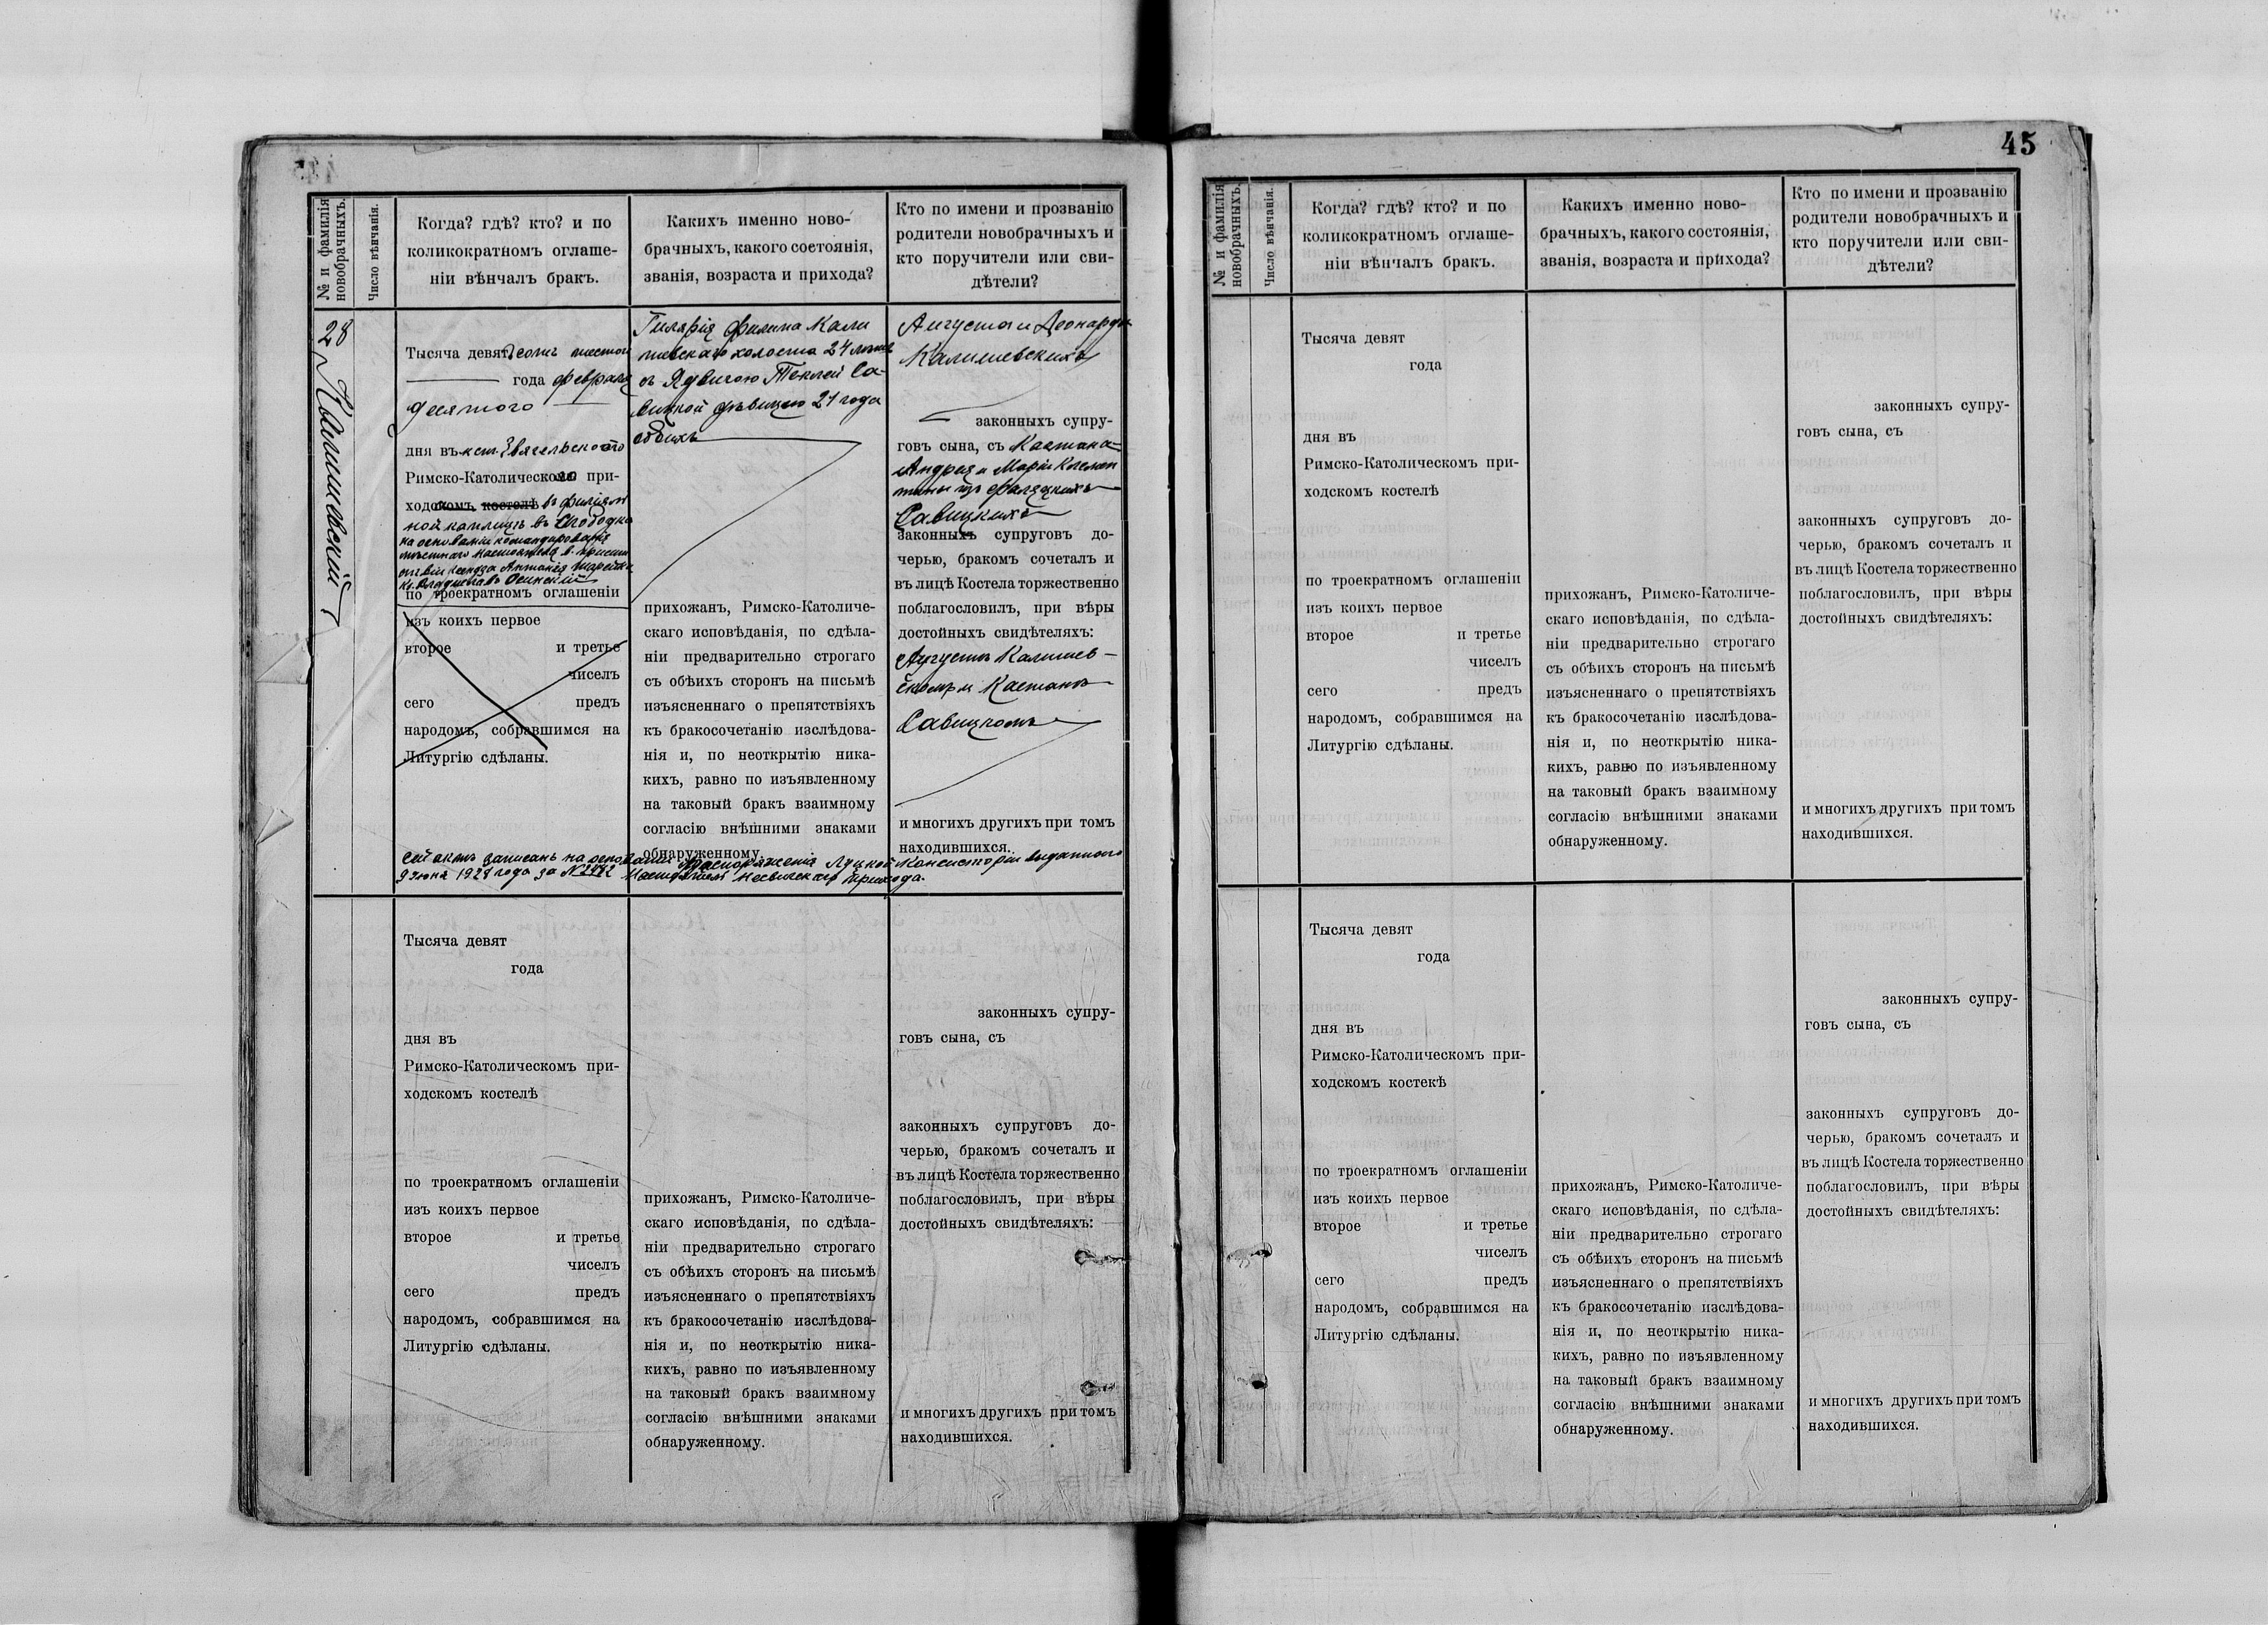 45
№ и фамилія
новобрачныхъ.
Число вѣнчанія.
Когда? гдѣ? кто? и по
коликократномъ оглаше-
ніи вѣнчалъ бракъ.
Какихъ именно ново-
брачныхъ, какого состоянія,
званія, возраста и прихода?
Кто по имени и прозванію
родители новобрачныхъ и
кто поручители или сви-
дѣтели?
28
Калишевскій
Тысяча девятьсотъ шестого
года февраля
десятого
дня въ кст. Звягельского
Римско-Католическомъ при-
ходскомъ костелѣ въ филіял
ной каплицѣ въ Слободкѣ
на основаніи командированія
мѣстнаго настоятеля в
ксендза Антонія
Кс. Владиславъ Осинскій
по троекратномъ оглашеніи
изъ коихъ первое
второе и третье
чиселъ
сего предъ
народомъ, собравшимся на
Литургію сдѣланы.
Гилярія Филипа Кали
шевскаго холоста 24 лѣтъ
съ Ядвигою Теклей Са-
вицкой дѣвицею 21 года
обоихъ
прихожанъ, Римско-Католиче-
скаго исповѣданія, по сдѣла-
ніи предварительно строгаго
съ обѣихъ сторонъ на письмѣ
изъясненнаго о препятствіяхъ
къ бракосочетанію изслѣдова-
нія и, по неоткрытію ника-
кихъ, равно по изъявленному
на таковый бракъ взаимному
согласію внѣшними знаками
обнаруженному.
Августа и Леонарды
Калишевскихъ
законныхъ супру-
говъ сына, съ Каетана-
Андрея и Маріи
изъ
Савицкихъ
законныхъ супруговъ до-
черью, бракомъ сочеталъ и
въ лицѣ Костела торжественно
поблагословилъ, при вѣры
достойныхъ свидѣтеляхъ:
Августѣ Калишев-
скомъ и Каетанѣ
Савицкомъ
и многихъ другихъ при томъ
находившихся.
Сей актъ записанъ на основаніи распоряженія Луцкой Консисторіи выданного
9 іюня 1928 года за № 2472 Настоятелемъ Несвичскаго прихода.
Тысяча девят
года
дня въ
Римско-Католическомъ при-
ходскомъ костелѣ
по троекратномъ оглашеніи
изъ коихъ первое
второе и третье
чиселъ
сего предъ
народомъ, собравшимся на
Литургію сдѣланы.
прихожанъ, Римско-Католиче-
скаго исповѣданія, по сдѣла-
ніи предварительно строгаго
съ обѣихъ сторонъ на письмѣ
изъясненнаго о препятствіяхъ
къ бракосочетанію изслѣдова-
нія и, по неоткрытію ника-
кихъ, равно по изъявленному
на таковый бракъ взаимному
согласію внѣшними знаками
обнаруженному.
законныхъ супру-
говъ сына, съ
законныхъ супруговъ до-
черью, бракомъ сочеталъ и
въ лицѣ Костела торжественно
поблагословилъ, при вѣры
достойныхъ свидѣтеляхъ:
и многихъ другихъ при томъ
находившихся.
№ и фамилія
новобрачныхъ.
Число вѣнчанія.
Когда? гдѣ? кто? и по
коликократномъ оглаше-
ніи вѣнчалъ бракъ.
Какихъ именно ново-
брачныхъ, какого состоянія,
званія, возраста и прихода?
Кто по имени и прозванію
родители новобрачныхъ и
кто поручители или сви-
дѣтели?
Тысяча девят
года
дня въ
Римско-Католическомъ при-
ходскомъ костелѣ
по троекратномъ оглашеніи
изъ коихъ первое
второе и третье
чиселъ
сего предъ
народомъ, собравшимся на
Литургію сдѣланы.
прихожанъ, Римско-Католиче-
скаго исповѣданія, по сдѣла-
ніи предварительно строгаго
съ обѣихъ сторонъ на письмѣ
изъясненнаго о препятствіяхъ
къ бракосочетанію изслѣдова-
нія и, по неоткрытію ника-
кихъ, равно по изъявленному
на таковый бракъ взаимному
согласію внѣшними знаками
обнаруженному.
законныхъ супру-
говъ сына, съ
законныхъ супруговъ до-
черью, бракомъ сочеталъ и
въ лицѣ Костела торжественно
поблагословилъ, при вѣры
достойныхъ свидѣтеляхъ:
и многихъ другихъ при томъ
находившихся.
Тысяча девят
года
дня въ
Римско-Католическомъ при-
ходскомъ костекѣ
по троекратномъ оглашеніи
изъ коихъ первое
второе и третье
чиселъ
сего предъ
народомъ, собравшимся на
Литургію сдѣланы.
прихожанъ, Римско-Католиче-
скаго исповѣданія, по сдѣла-
ніи предварительно строгаго
съ обѣихъ сторонъ на письмѣ
изъясненнаго о препятствіяхъ
къ бракосочетанію изслѣдова-
нія и, по неоткрытію ника-
кихъ, равно по изъявленному
на таковый бракъ взаимному
согласію внѣшними знаками
обнаруженному.
законныхъ супру-
говъ сына, съ
законныхъ супруговъ до-
черью, бракомъ сочеталъ и
въ лицѣ Костела торжественно
поблагословилъ, при вѣры
достойныхъ свидѣтеляхъ:
и многихъ другихъ при томъ
находившихся.